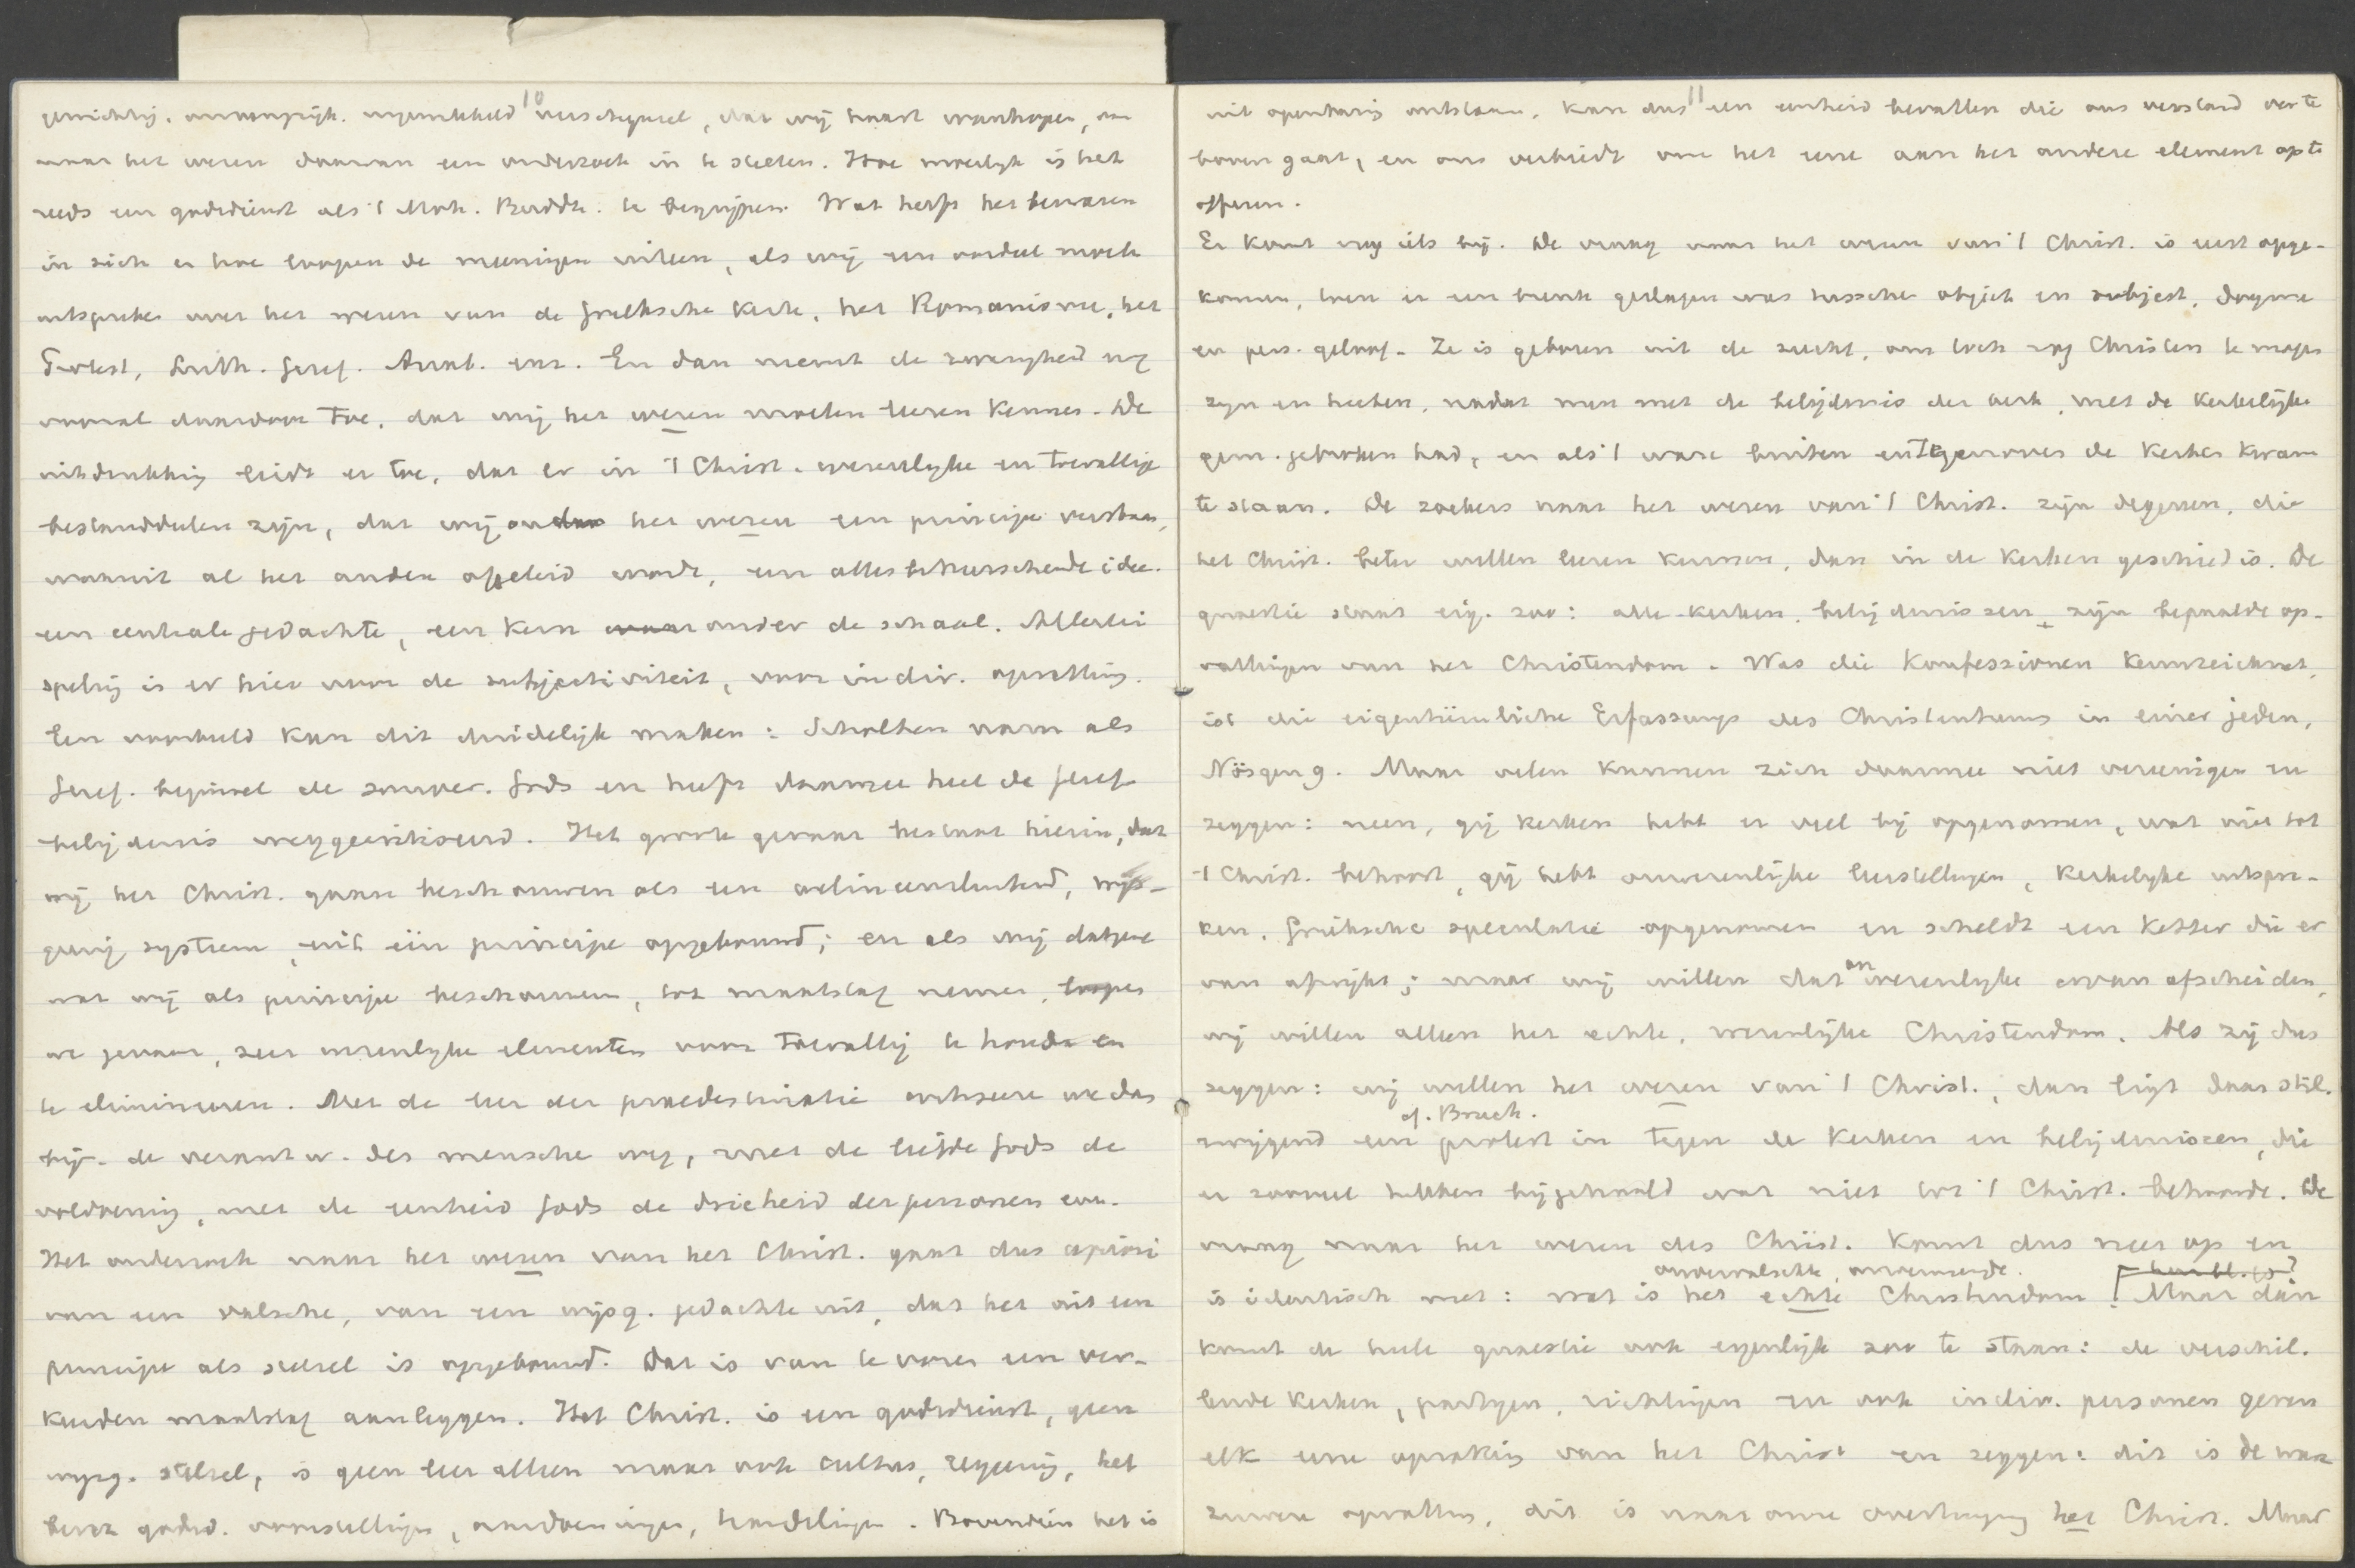 10
omvangrijk. ingewikkeld verschijnsel, dat wij haast wanhopen, om
naar het wezen daarvan een onderzoek in te stellen. Hoe moeilijk is het
reeds een godsdienst als 't Moh. Buddh. te begrijpen. Wat heeft het bewaren
in zich en hoe loopen de meeningen uiteen, als wij een oordeel moeten
uitspreken over het wezen van de Grieksche Kerk, het Romanisme, het
Protest, Luth. Geref. Anab. enz. En dan neemt de zwarigheid nog
vooral daardoor toe, dat wij het wezen moeten leeren kennen. De
uitdrukking leidt er toe, dat er in 't Christ. wezenlijke en toevallige
bestanddeelen zijn, dat wij onder het wezen een principe verstaan,
waaruit al het andere afgeleid wordt, een allesbeheerschende idee.
een centrale gedachte, een kern onder de schaal. Allerlei
speling is er hier voor de subjectiviteit, voor indiv. opvatting.
Een voorbeeld kan dit duidelijk maken: Scholten nam als
Geref. beginsel de souver. Gods en heeft daarmee heel de Geref.
belijdenis weggecritiseerd. Het groote gevaar bestaat hierin, dat
wij het Christ. gaan beschouwen als een wijs-
geerig systeem, uit één principe opgebouwd; en als wij datgene
wat wij als principe beschouwen, tot maatstaf nemen, loopen
we gevaar, zeer wezenlijke elementen voor toevallig te houden en
te elimineeren. Met de leer der praedestinatie cuts we dus
bijv. de verantw. des menschen weg, met de liefde Gods de
voldoening, met de eenheid Gods de drieheid der personen enz.
Het onderzoek naar het wezen van het Christ. gaat dus apriori
van een valsche, van een wijsg. gedachte uit, dat het uit een
principe als stelsel is opgebouwd. Dat is van te voren een ver-
keerden maatstaf aanleggen. Het Christ. is een godsdienst, geen
wijsg. stelsel, is geen leer alleen maar ook cultus, regeering, het
bevat godsd. voorstellingen, aandoeningen, handelingen. Bovendien het is
11
uit openbaring ontstaan, kan dus een eenheid bevatten die ons verstand verre te
boven gaat, en ons verbiedt om het eene aan het andere element op te
offeren.
Er komt nog iets bij. De vraag naar het wezen van 't Christ. is eerst opge-
komen, toen er een breuk geslagen was tusschen object en subject, dogma
en pers. geloof. Ze is geboren uit de zucht, om toch nog Christen te mogen
zijn en heeten, nadat men met de belijdenis der kerk, met de kerkelijke
gem. gebroken had, en als 't ware buiten en tegenover de kerken kwam
te staan. De zoekers naar het wezen van 't Christ. zijn degenen, die
het Christ. beter willen leeren kennen, dan in de kerken geschied is. De
quaestie staat eig. zoo: alle kerken, belijdenissen zijn bepaalde op-
vattingen van het Christendom. Was die Konfessionen kennzeichnet,
ist die eigenthümliche Erfassung des Christenthums in einer jeden,
Nösgen 9. Maar velen kunnen zich daarmee niet vereenigen en
zeggen: neen, gij kerken hebt er veel bij opgenomen, wat niet tot
't Christ. behoort, gij hebt onwezenlijke leerstellingen, kerkelijke uitspra-
ken, Grieksche speculatie opgenomen en scheldt een ketter die er
van afwijkt; maar wij willen dat onwezenlijke ervan afscheiden,
wij willen alleen het echte, wezenlijke Christendom. Als zij dus
zeggen: wij willen het wezen van 't Christ., dan ligt daar stil-
cf. Bruch.
zwijgend een protest in tegen de kerken en belijdenissen, die
er zooveel hebben bijgehaald wat niet tot 't Christ. behoorde. De
vraag naar het wezen des Christ. komt dus neer op en
onvervalschte, onvermengde.
is identisch met: wat is het echte Christendom? Maar dan
komt de heele quaestie ook eigenlijk zoo te staan: de verschil-
lende kerken, partijen, richtingen en ook indiv. personen geven
elk eene opvatting van het Christ en zeggen: dit is de ware
zuivere opvatting, dit is naar onze overtuiging het Christ. Maar